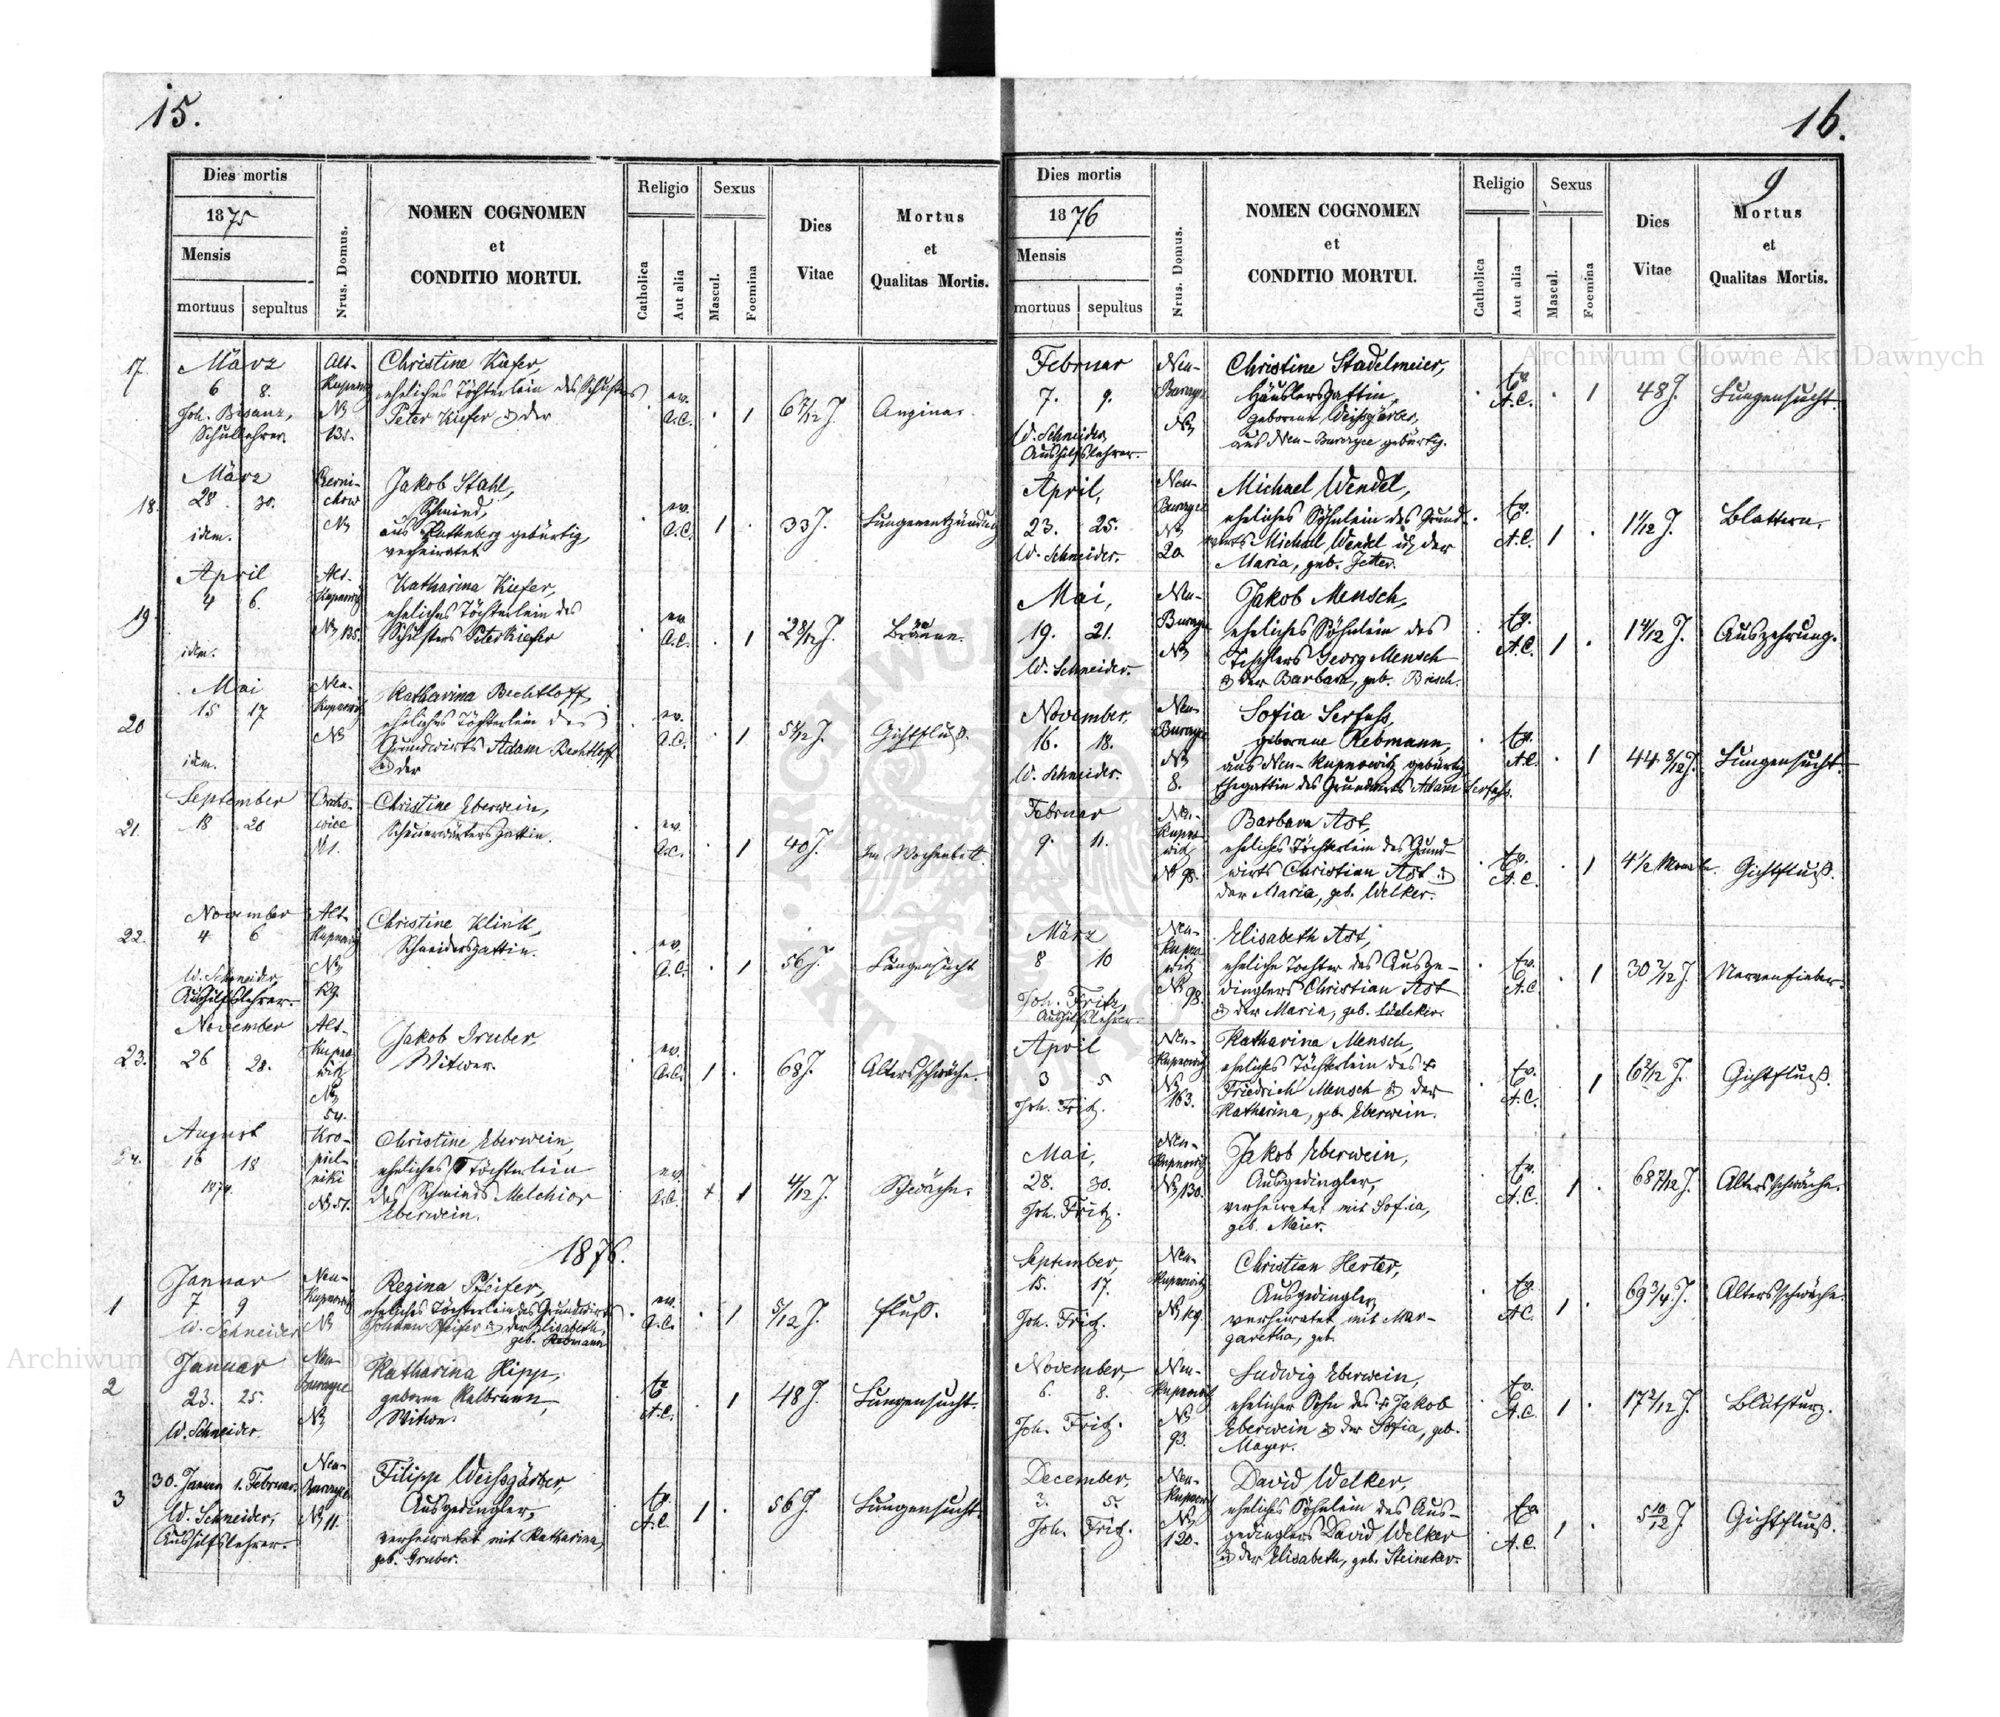 15.
Dies mortis
1875
Mensis
mortuus sepultus
Nrus. Domus.
NOMEN COGNOMEN
et
CONDITIO MORTUI.
Religio
Catholica
Aut alia
Sexus
Mascul.
Foemina
Dies
Vitae
Mortus
et
Qualitas Mortis.
17. März Alt- Christine Kiefer,
6 8. Kupnowitz eheliches Töchterlein des Schusters ev.
Joh. Bisanz, No Peter Kiefer & der A.C. 1 6 7/12 J. Angina.
Schullehrer 135.
18. März Jakob Stahl,
28 30. Schmied, ev.
idem. No aus gebürtig, A.C. 1 33 J. Lungenentzündung
verheiratet
19. April Alt- Katharina Kiefer,
4 6. Kupnowitz eheliches Töchterlein des ev.
No 135. Schusters Peter Kiefer A.C. 1 2 8/12 J. Bräune.
idem.
20 Mai Neu- Katharina Bechtloff,
15 17 Kupnowitz eheliches Töchterlein des ev.
No Grundwirts Adam Bechtloff A.C. 1 Gichtfluß.
idem. & der
21. September Christine Eberwein,
18 20 ev.
No 1. A.C. 1 40 J. Im Wochenbett.
22. November Alt- Christine Klink,
4 6 Kupnowitz Schneidersgattin. ev.
W. Schneider, No A.C. 1 56 J. Lungensucht
Aushilfslehrer. 
23. November Alt- Jakob Gruber,
26 28. Kupnowitz Witwer. ev.
No A.C. 1 68 J. Altersschwäche.
54.
24. August Kro- Christine Eberwein,
16 18 piel- eheliches Töchterlein ev.
1874. niki des Schmieds Melchior A.C. 1 4/12 J. Schwäche.
No 51. Eberwein.
1876.
1 Januar Neu- Regina Pfeifer,
7 9 Kupnowitz eheliches Töchterlein des Grundwirts ev.
W. Schneider No Pfeifer & der Elisabeth, A.C. 1 5/12 J. Fluß.
geb. Rebmann
2 Januar Neu- Katharina Hipp,
23. 25. Burczyce geborne Kalbrunn, ev.
W. Schneider. No Witwe. A.C. 1 48 J. Lungensucht.
3 30. Januar 1. Februar. Neu- Filipp Weißgärber,
W. Schneider, Burczyce Ausgedingler, ev.
Aushilfslehrer. No 11. verheiratet mit Katharina, A.C. 1 56 J. Lungensucht
geb. Gruber.
16.
9
Dies mortis
1876
Mensis
mortuus sepultus
Nrus. Domus.
NOMEN COGNOMEN
et
CONDITIO MORTUI.
Religio
Catholica
Aut alia
Sexus
Mascul.
Foemina
Dies
Vitae
Mortus
et
Qualitas Mortis.
Februar Neu- Christine Stadelmeier,
7. 9. Burczyce Häuslersgattin, Ev.
W. Schneider, No geborene Weißgärber, A.C. 1 48 J. Lungensucht.
Aushilfslehrer. aus Neu-Burczyce gebürtig.
April, Neu- Michael Wendel,
23. 25. Burczyce eheliches Söhnlein des Grund- Ev.
W. Schneider. No 20 wirts Michael Wendel u. der A.C. 1 1 1/12 J. Blattern.
Maria, geb. Jetter.
Mai, Neu- Jakob Mensch,
19. 21. Burczyce eheliches Söhnlein des Ev.
W. Schneider. No Tischlers Georg Mensch A.C. 1 Auszehrung.
& der Barbara, geb. Bisch.
November. Neu- Sofia Serfass,
16. 18. Burczyce geborene Rebmann, Ev.
W. Schneider. No aus Neu-Kupnowitz gebürtig A.C. 1 44 8/12 J. Lungensucht.
8. Ehegattin des Grundwirts Adam Serfass.
Februar Neu- Barbara Ast,
9. 11. Kupnowitz eheliches Töchterlein des Grund- Ev.
No 98. wirts Christian Ast & A.C. 1 4 1/2 Monate. Gichtfluß.
der Maria, geb. Welker.
März Neu- Elisabeth Ast,
8 10 Kupnowitz eheliche Tochter des Ausge- Ev.
Joh. Fritz, No 98. dinglers Christian Ast A.C. 1 30 2/12 J. Nervenfieber.
Aushilfslehrer. & der Maria, geb. Welker.
April Neu- Katharina Mensch,
3 5 Kupnowitz eheliches Töchterlein des + Ev.
Joh. Fritz. No 163. Friedrich Mensch & der A.C. 1 Gichtfluß.
Katharina, geb. Eberwein.
Mai, Neu- Jakob Eberwein,
28. 30. Kupnowitz Ausgedingler, Ev.
Joh. Fritz. No 130. verheiratet mit Sofia, A.C. 1 68 7/12 J. Altersschwäche.
geb. Maier.
September, Neu- Christian Herter,
15. 17. Kupnowitz Ausgedingler, Ev.
Joh. Fritz. No verheiratet mit Mar- A.C. 1 69 3/4 J. Altersschwäche.
garetha, geb.
November, Neu- Ludwig Eberwein,
6. 8. Kupnowitz ehelicher Sohn des + Jakob Ev.
Joh. Fritz. No 93. Eberwein & der Sofia, geb. A.C. 1 17 2/12 J. Blutsturz.
Mayer.
December, Neu- David Welker,
3. 5. Kupnowitz eheliches Söhnlein des Aus- Ev.
Joh. Fritz. No 120. gedinglers David Welker A.C. 1 5 10/12 J. Gichtfluß.
& der Elisabeth, geb. Steineker.
Archiwum Główne Akt Dawnych
Archiwum Główne Akt Dawnych